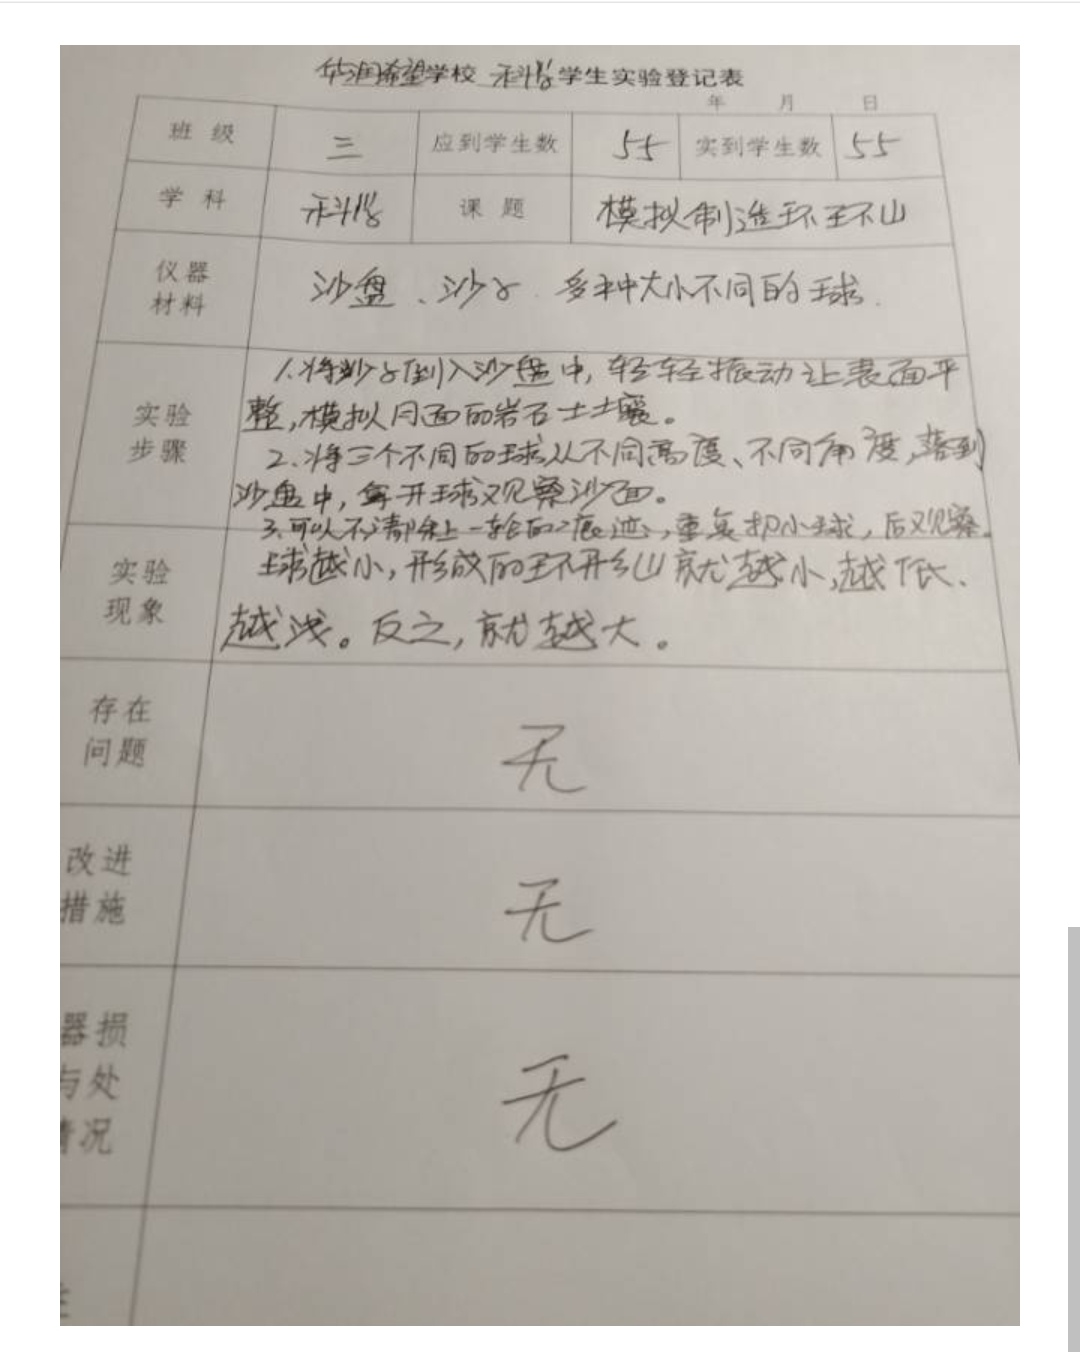 华润希望学校 科学 学生实验登记表
年 月 日
班 级 三 应到学生数 55 实到学生数 55
学 科 科学 课 题 模拟制造环环山
仪器
材料
沙盘、沙子、多种大小不同的球.
实验
步骤
1.将沙子倒入沙盘中,轻轻振动让表面平
整,模拟月面的岩石土土壤。
2.将三个不同的球从不同高度、不同角度,落到
沙盘中,拿开球观察沙面。
3.可以不清除上一轮的痕迹,重复扔小球,后观察。
实验
现象
球越小,形成的环形山就越小,越低、
越浅。反之,就越大。
存在
问题
无
改进
措施
无
器损
与处
情况
无